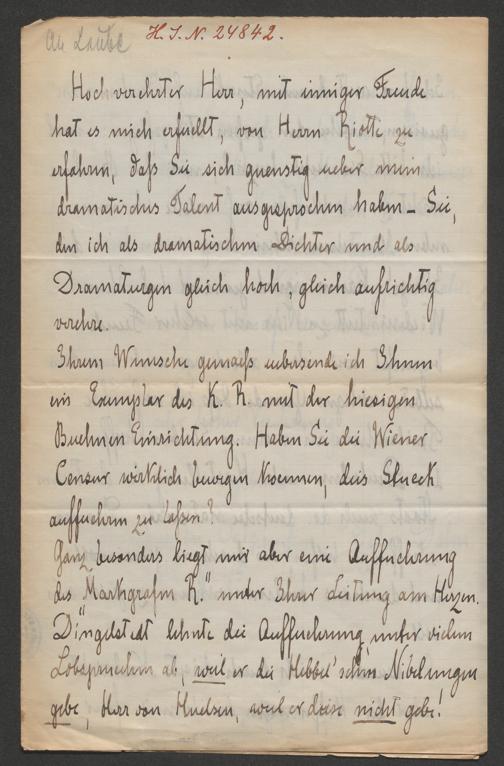 An Laube
H. I. N. 24842.
Hoch verehrter Herr, mit inniger Freude
hat es mich erfuellt, von Herrn Riotte zu
erfahren, daß Sie sich guenstig ueber mein
dramatisches Talent ausgesprochen haben – Sie,
den ich als dramatischen Dichter und als
Dramaturgen gleich hoch, gleich aufrichtig
verehre.
Ihrem Wunsche gemaeß uebersende ich Ihnen
ein Exemplar des K. R. mit der hiesigen
Buehnen Einrichtung. Haben Sie die Wiener
Censur wirklich bewegen koennen, dies Stueck
auffuehren zu laßen?
Ganz besonders liegt mir aber eine Auffuehrung
des „Markgrafen R." unter Ihrer Leitung am Herzen.
Dingelstedt lehnte die Auffuehrung unter vielen
Lobspruechen ab weil er die Hebbel'schen Nibelungen
gebe, Herr von Huelsen, weil er diese nicht gebe!